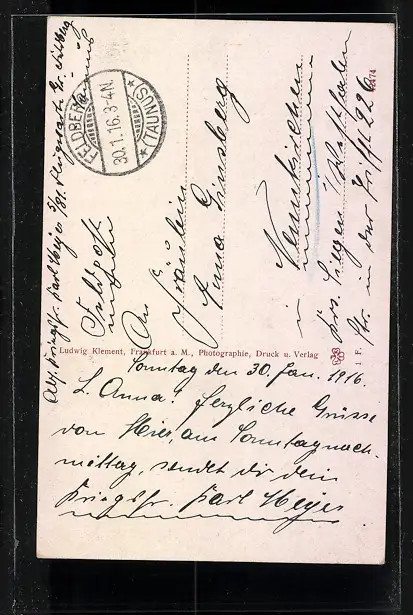 Abs. Kriegsfr. Karl Meyer
FELDBERG
30.1.16.3-4N.
* (TAUNUS) *
Feldpost
An
Fräulein
Anna Ginsberg
in Neunkirchen
Krs. Siegen Westfalen
Str. in der Trift 226
Ludwig Klement, Frankfurt a. M., Photographie, Druck u. Verlag
1 F.
Sonntag den 30. Jan. 1916.
L. Anna! Herzliche Grüsse
von Hier, am Sonntagnach-
mittag, sendet dir dein
Kriegsfr. Karl Meyer